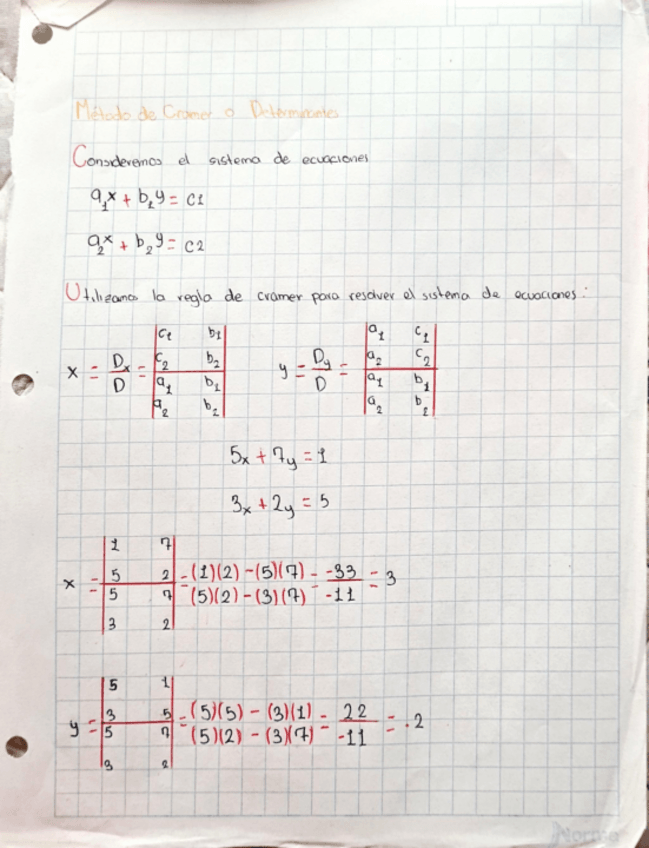 Método de Cramer o Determinantes
Consideremos el sistema de ecuaciones
a₁x + b₁y = c1
a₂x + b₂y = c2
Utilizamos la regla de cramer para resolver el sistema de ecuaciones:
x = Dx/D = |c₁ b₁; c₂ b₂| / |a₁ b₁; a₂ b₂| y = Dy/D = |a₁ c₁; a₂ c₂| / |a₁ b₁; a₂ b₂|
5x + 7y = 1
3x + 2y = 5
x = |1 7; 5 2| / |5 7; 3 2| = (1)(2) - (5)(7) / (5)(2) - (3)(7) = -33 / -11 = 3
y = |5 1; 3 5| / |5 7; 3 2| = (5)(5) - (3)(1) / (5)(2) - (3)(7) = 22 / -11 = -2
Norma